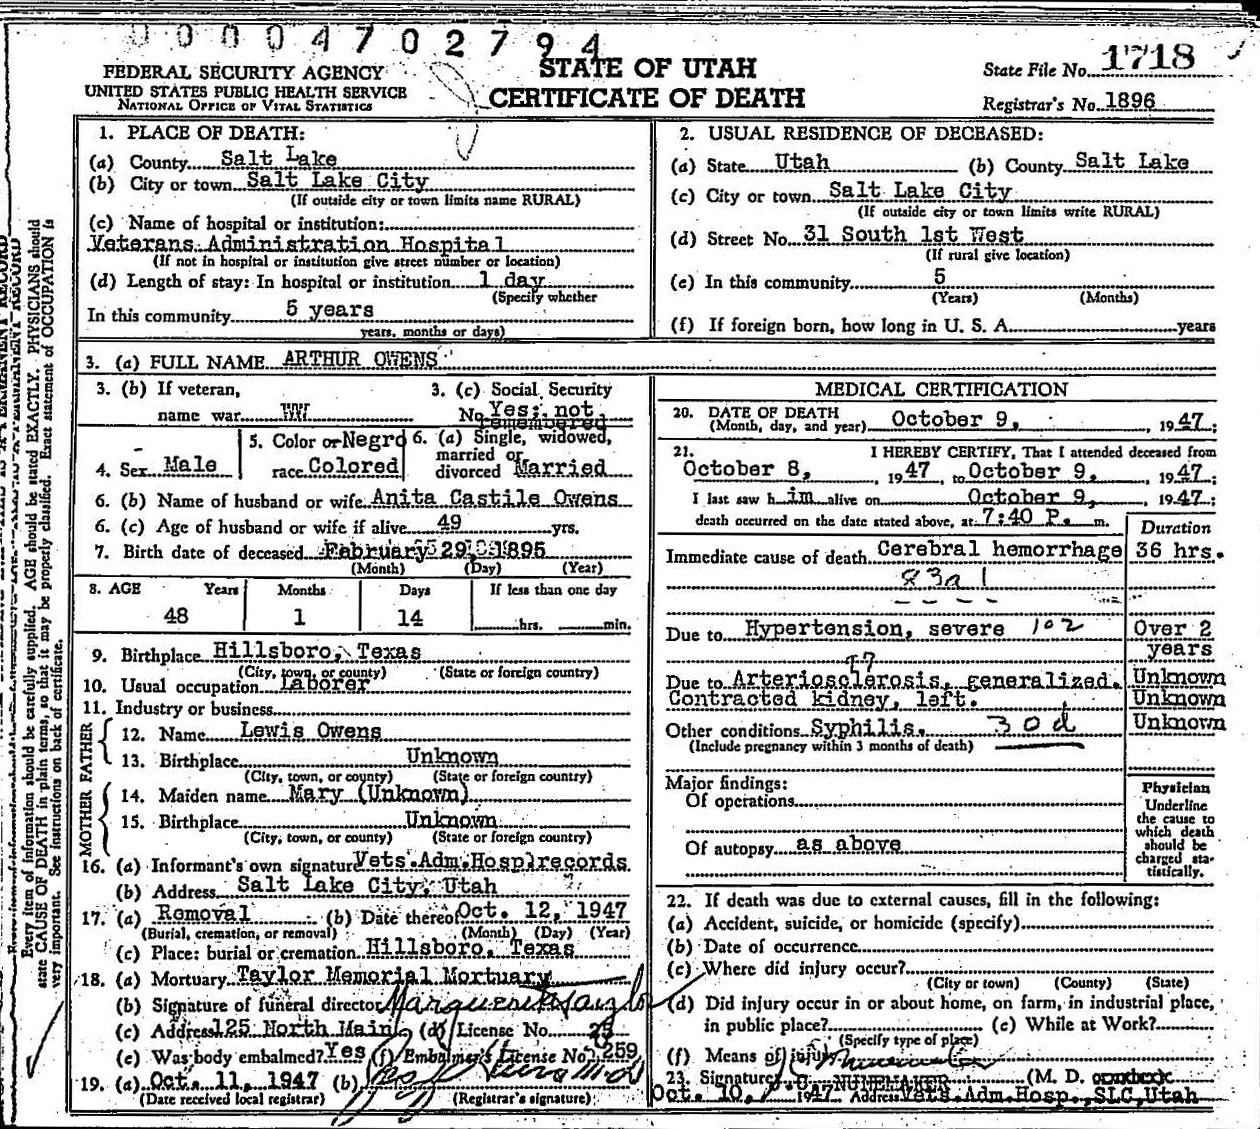 00004702794
FEDERAL SECURITY AGENCY
UNITED STATES PUBLIC HEALTH SERVICE
NATIONAL OFFICE OF VITAL STATISTICS
STATE OF UTAH
CERTIFICATE OF DEATH
State File No. 1718
Registrar's No. 1896
1. PLACE OF DEATH:
(a) County Salt Lake
(b) City or town Salt Lake City
(If outside city or town limits name RURAL)
(c) Name of hospital or institution:
Veterans Administration Hospital
(If not in hospital or institution give street number or location)
(d) Length of stay: In hospital or institution 1 day
(Specify whether
In this community 5 years
years, months or days)
2. USUAL RESIDENCE OF DECEASED:
(a) State Utah (b) County Salt Lake
(c) City or town Salt Lake City
(If outside city or town limits write RURAL)
(d) Street No. 31 South 1st West
(If rural give location)
(e) In this community 5
(Years) (Months)
(f) If foreign born, how long in U. S. A. years
3. (a) FULL NAME ARTHUR OWENS
3. (b) If veteran, 3. (c) Social Security
name war WW No. Yes; not
remembered
4. Sex Male 5. Color or Negro race Colored 6. (a) Single, widowed, married or divorced Married
6. (b) Name of husband or wife Anita Castile Owens
6. (c) Age of husband or wife if alive 49 yrs.
7. Birth date of deceased February 29, 1895
(Month) (Day) (Year)
8. AGE Years Months Days If less than one day
48 1 14 hrs. min.
9. Birthplace Hillsboro, Texas
(City, town, or county) (State or foreign country)
10. Usual occupation Laborer
11. Industry or business
FATHER
12. Name Lewis Owens
13. Birthplace Unknown
(City, town, or county) (State or foreign country)
MOTHER
14. Maiden name Mary (Unknown)
15. Birthplace Unknown
(City, town, or county) (State or foreign country)
16. (a) Informant's own signature Vets.Adm.Hosp. records
(b) Address Salt Lake City, Utah
17. (a) Removal (b) Date thereof Oct. 12, 1947
(Burial, cremation, or removal) (Month) (Day) (Year)
(c) Place: burial or cremation Hillsboro, Texas
18. (a) Mortuary Taylor Memorial Mortuary
(b) Signature of funeral director Marguerite Taylor
(c) Address 125 North Main (d) License No. 25
(e) Was body embalmed? Yes (f) Embalmer's License No. 259
19. (a) Oct. 11, 1947 (b)
(Date received local registrar) (Registrar's signature)
MEDICAL CERTIFICATION
20. DATE OF DEATH
(Month, day, and year) October 9, 1947;
21. I HEREBY CERTIFY, That I attended deceased from
October 8, 1947 to October 9, 1947;
I last saw him alive on October 9, 1947;
death occurred on the date stated above, at 7:40 P. m.
Duration
Immediate cause of death Cerebral hemorrhage 36 hrs.
83a 1
Due to Hypertension, severe 102 Over 2
years
97
Due to Arteriosclerosis, generalized. Unknown
Contracted kidney, left. Unknown
Other conditions Syphilis. 30d Unknown
(Include pregnancy within 3 months of death)
Major findings:
Of operations
Of autopsy as above
Physician
Underline
the cause to
which death
should be
charged sta-
tistically.
22. If death was due to external causes, fill in the following:
(a) Accident, suicide, or homicide (specify)
(b) Date of occurrence
(c) Where did injury occur?
(City or town) (County) (State)
(d) Did injury occur in or about home, on farm, in industrial place,
in public place? (e) While at Work?
(Specify type of place)
(f) Means of injury
23. Signature NUNEMAKER (M. D.
Oct. 10, 1947 Address Vets.Adm.Hosp.,SLC,Utah
Every item of information should be carefully supplied. AGE should be stated EXACTLY. PHYSICIANS should
state CAUSE OF DEATH in plain terms, so that it may be properly classified. Exact statement of OCCUPATION is
very important. See instructions on back of certificate.